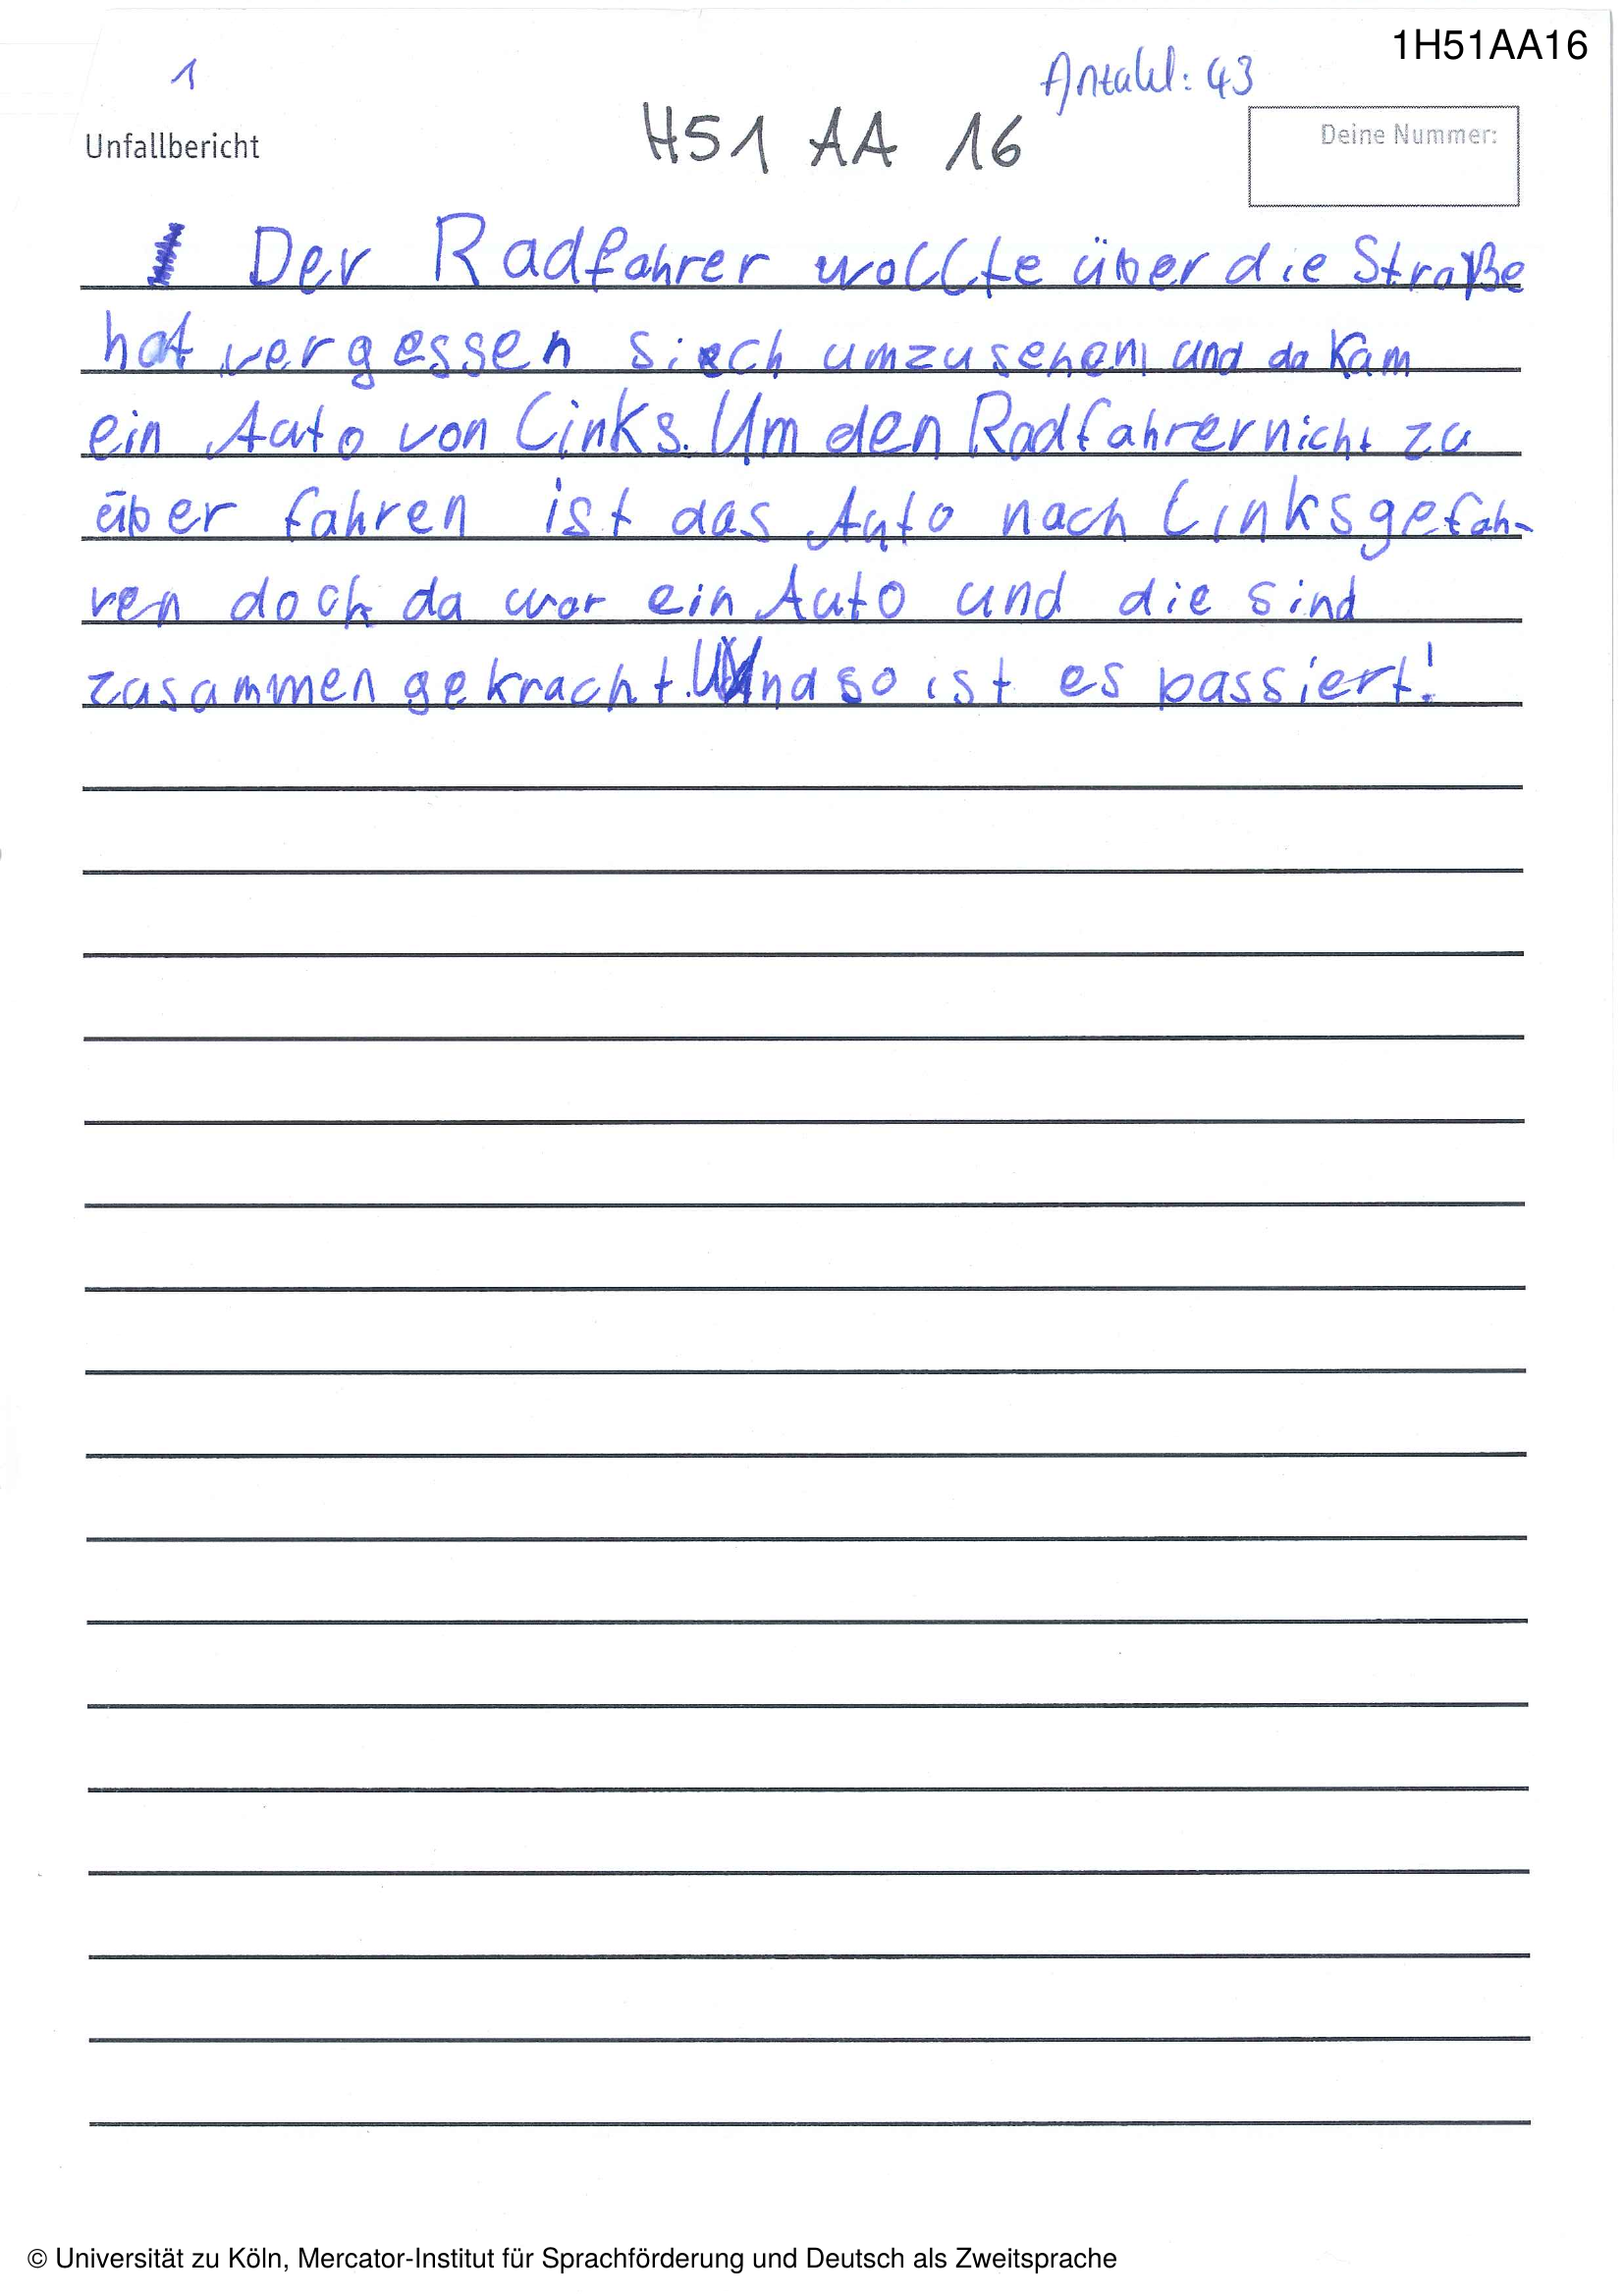 1H51AA16
1 Antahl: 43
Unfallbericht H51 AA 16 Deine Nummer:
Der Radfahrer wollte über die Straße
hat vergessen siech umzusehen und da Kam
ein Auto von Links. Um den Radfahrer nicht zu
über fahren ist das Auto nach Linksgefah-
ren doch da war ein Auto und die sind
zusammen gekracht. Und so ist es passiert!
© Universität zu Köln, Mercator-Institut für Sprachförderung und Deutsch als Zweitsprache